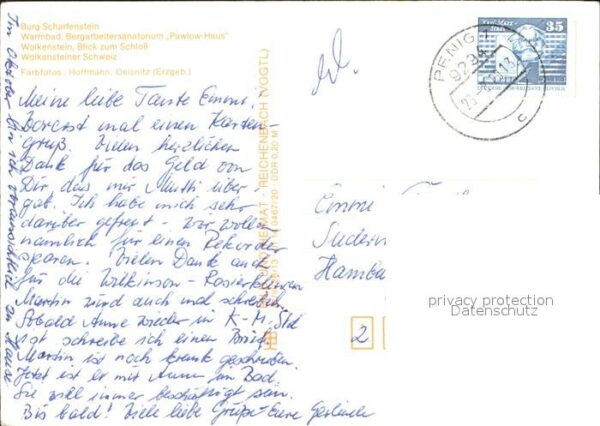 Burg Scharfenstein
Warmbad, Bergarbeitersanatorium „Pawlow-Haus"
Wolkenstein, Blick zum Schloß
Wolkensteiner Schweiz
Farbfotos: Hoffmann, Oelsnitz (Erzgeb.)
Meine liebe Tante Emmi!
Vorerst mal einen Karten-
gruß. Vielen herzlichen
Dank für das Geld von
Dir, das mir Mutti über-
gab. Ich habe mich sehr
darüber gefreut - wir wollen
nämlich für einen Rekorder
sparen. Vielen Dank auch
für die Wilkinson-Rasierklingen
Martin wird auch mal schreiben
Sobald Anne wieder in K-M-Std
ist schreibe ich einen Brief.
Martin ist noch krank geschrieben
Jetzt ist er mit Anne im Bad.
Sie will immer beschäftigt sein.
Bis bald! Viele liebe Grüße - Eure Gerlinde
Im Oktober bin ich voraussichtlich zu Hause.
REICHENBACH (VOGTL)
DDR 0,20 M
35
PENIG 1
9294
c
Emmi
Sudern
Hamba
2
privacy protection
Datenschutz